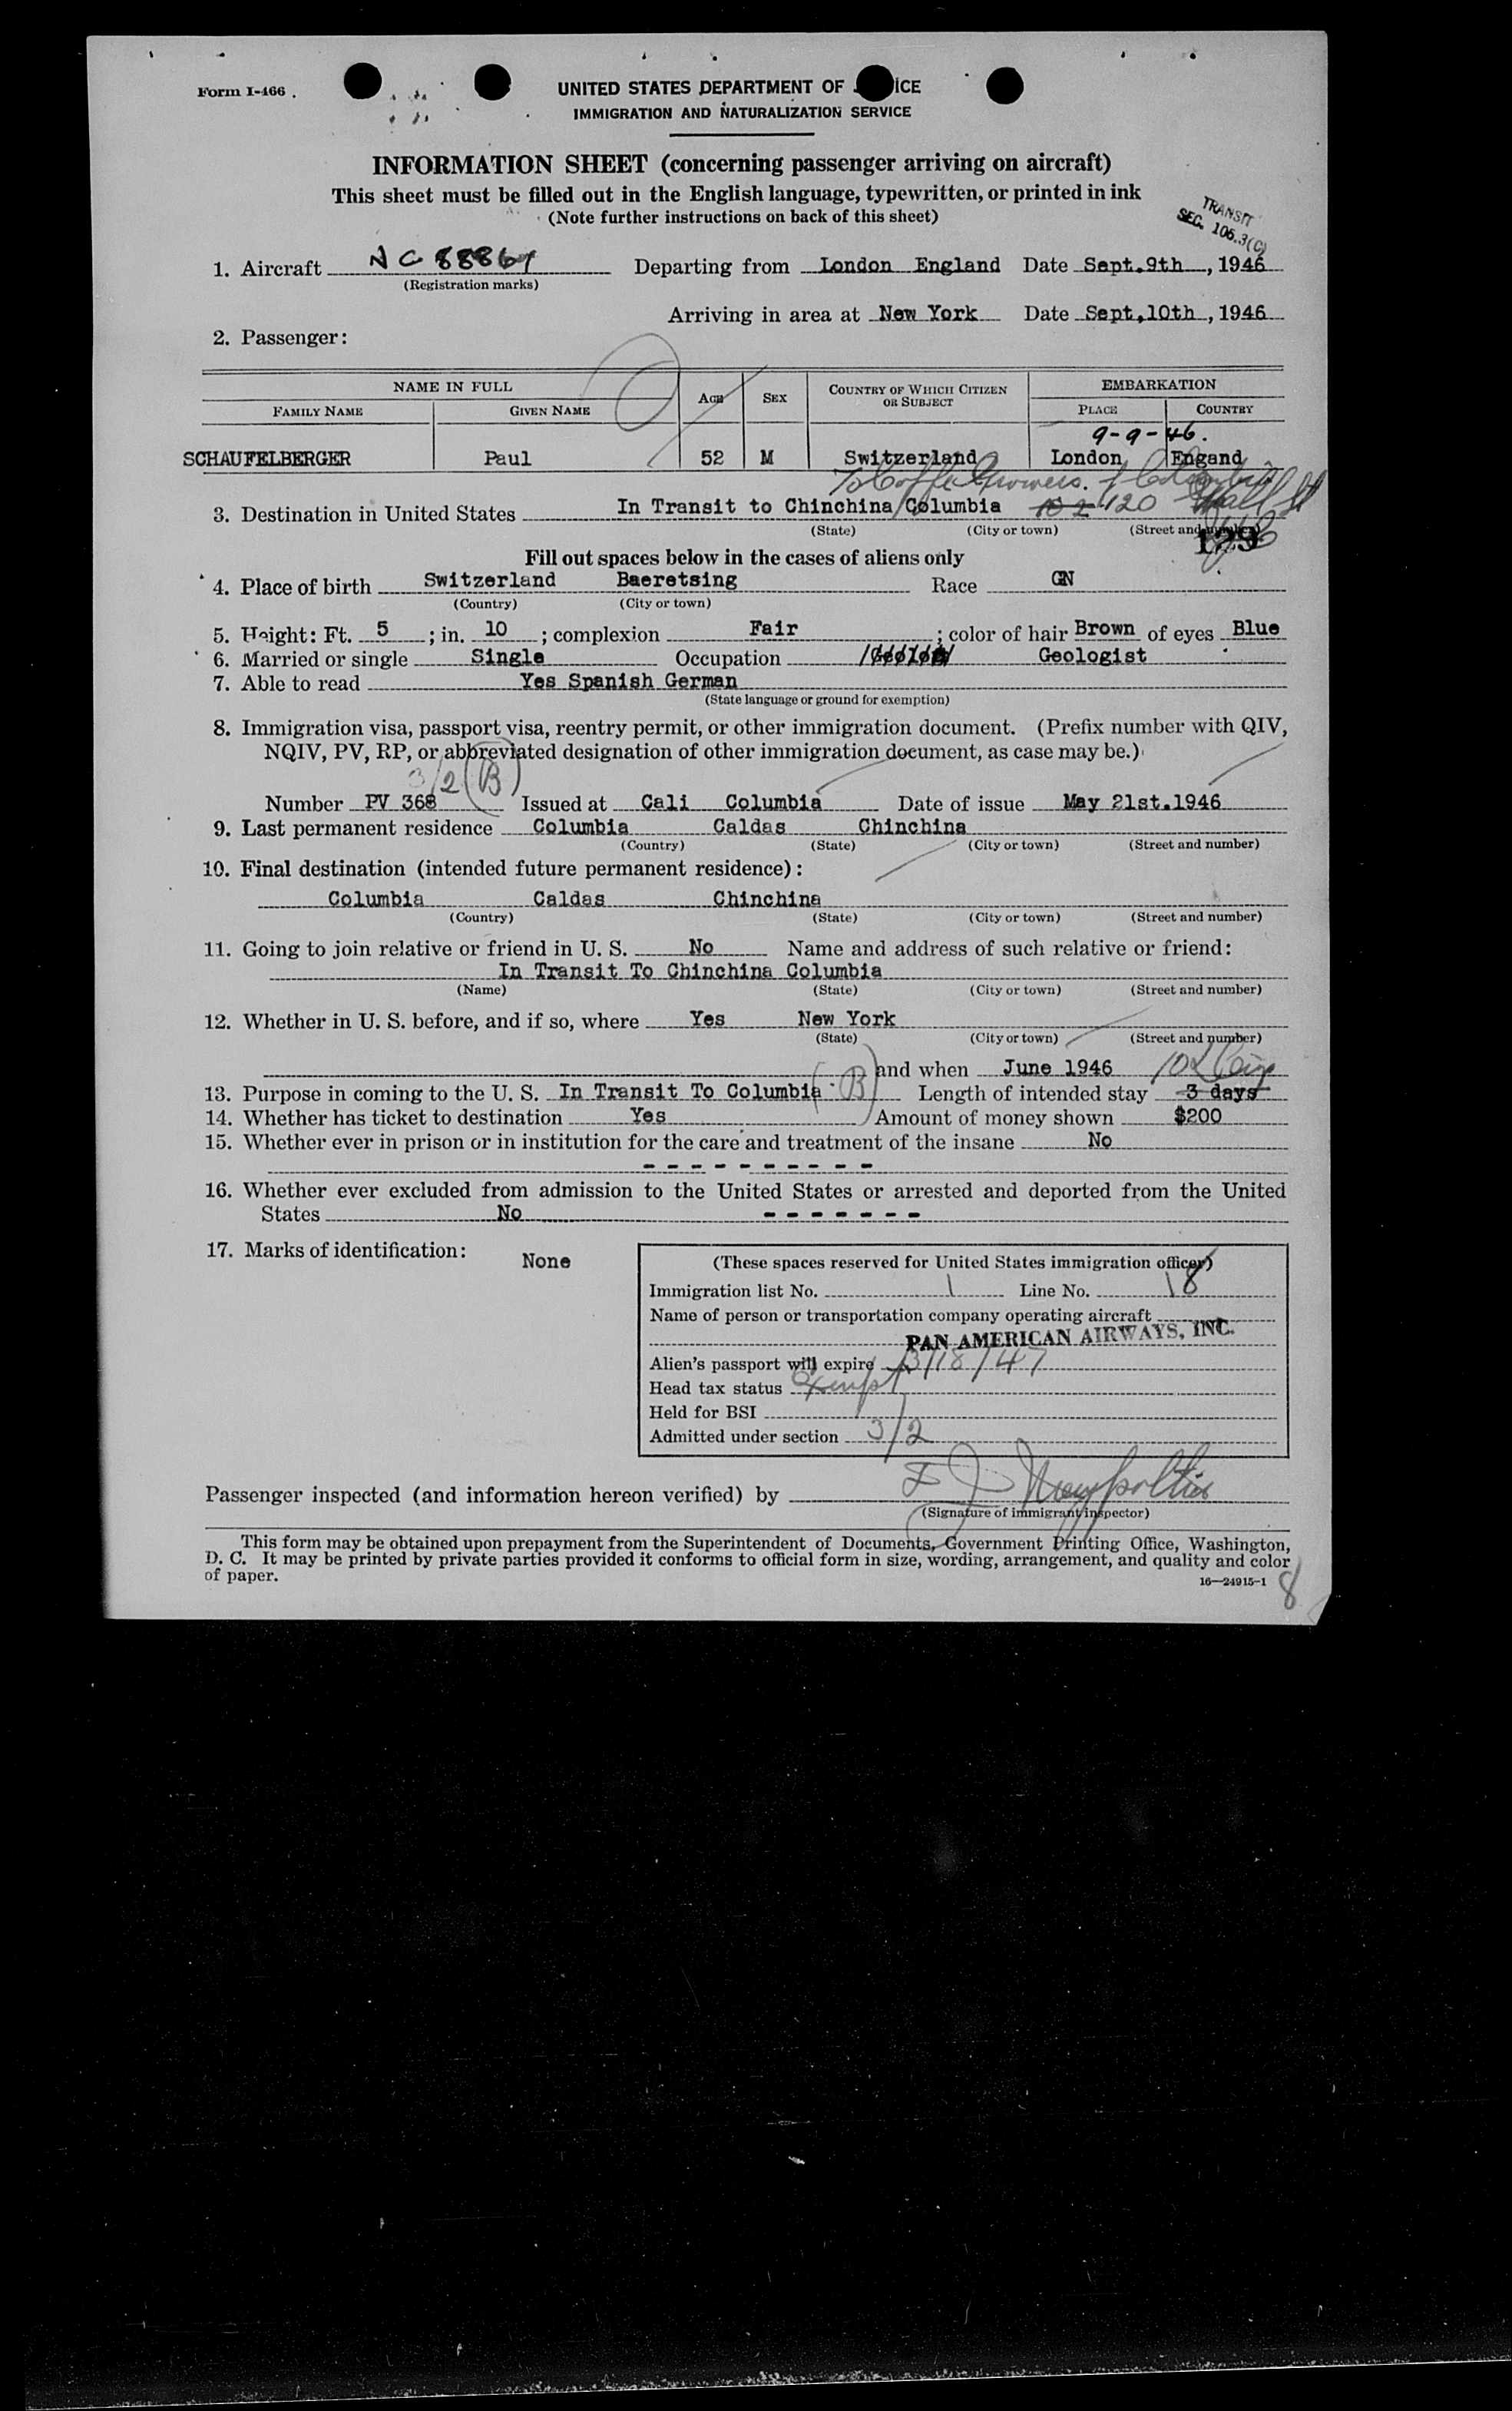 Form I-466
UNITED STATES DEPARTMENT OF ICE
IMMIGRATION AND NATURALIZATION SERVICE
INFORMATION SHEET (concerning passenger arriving on aircraft)
This sheet must be filled out in the English language, typewritten, or printed in ink
(Note further instructions on back of this sheet)
TRANSIT
SEC. 105.3(C)
1. Aircraft Departing from London England Date Sept.9th, 1946
(Registration marks)
Arriving in area at New York Date Sept,10th, 1946
2. Passenger:
NAME IN FULL AGE SEX COUNTRY OF WHICH CITIZEN OR SUBJECT EMBARKATION
FAMILY NAME GIVEN NAME PLACE COUNTRY
9-9-46.
SCHAUFELBERGER Paul 52 M Switzerland London Engand
To Coffee Growers of Colombia
3. Destination in United States In Transit to Chinchina Columbia 120 Wall St
(State) (City or town) (Street and number)
129
Fill out spaces below in the cases of aliens only
4. Place of birth Switzerland Baeretsing Race GN
(Country) (City or town)
5. Height: Ft. 5; in. 10; complexion Fair; color of hair Brown of eyes Blue
6. Married or single Single Occupation Geologist
7. Able to read Yes Spanish German
(State language or ground for exemption)
8. Immigration visa, passport visa, reentry permit, or other immigration document. (Prefix number with QIV,
NQIV, PV, RP, or abbreviated designation of other immigration document, as case may be.)
3/2 (B)
Number PV 368 Issued at Cali Columbia Date of issue May 21st.1946
9. Last permanent residence Columbia Caldas Chinchina
(Country) (State) (City or town) (Street and number)
10. Final destination (intended future permanent residence):
Columbia Caldas Chinchina
(Country) (State) (City or town) (Street and number)
11. Going to join relative or friend in U. S. No Name and address of such relative or friend:
In Transit To Chinchina Columbia
(Name) (State) (City or town) (Street and number)
12. Whether in U. S. before, and if so, where Yes New York
(State) (City or town) (Street and number)
and when June 1946
13. Purpose in coming to the U. S. In Transit To Columbia (B) Length of intended stay 3 days
14. Whether has ticket to destination Yes Amount of money shown $200
15. Whether ever in prison or in institution for the care and treatment of the insane No
- - - - - - - - - -
16. Whether ever excluded from admission to the United States or arrested and deported from the United
States No - - - - - - -
17. Marks of identification: None
(These spaces reserved for United States immigration officer)
Immigration list No. 1 Line No. 18
Name of person or transportation company operating aircraft
PAN AMERICAN AIRWAYS, INC.
Alien's passport will expire 3/18/47
Head tax status Exempt
Held for BSI
Admitted under section 3/2
Passenger inspected (and information hereon verified) by
(Signature of immigrant inspector)
This form may be obtained upon prepayment from the Superintendent of Documents, Government Printing Office, Washington,
D. C. It may be printed by private parties provided it conforms to official form in size, wording, arrangement, and quality and color
of paper.
16—24915-1
8